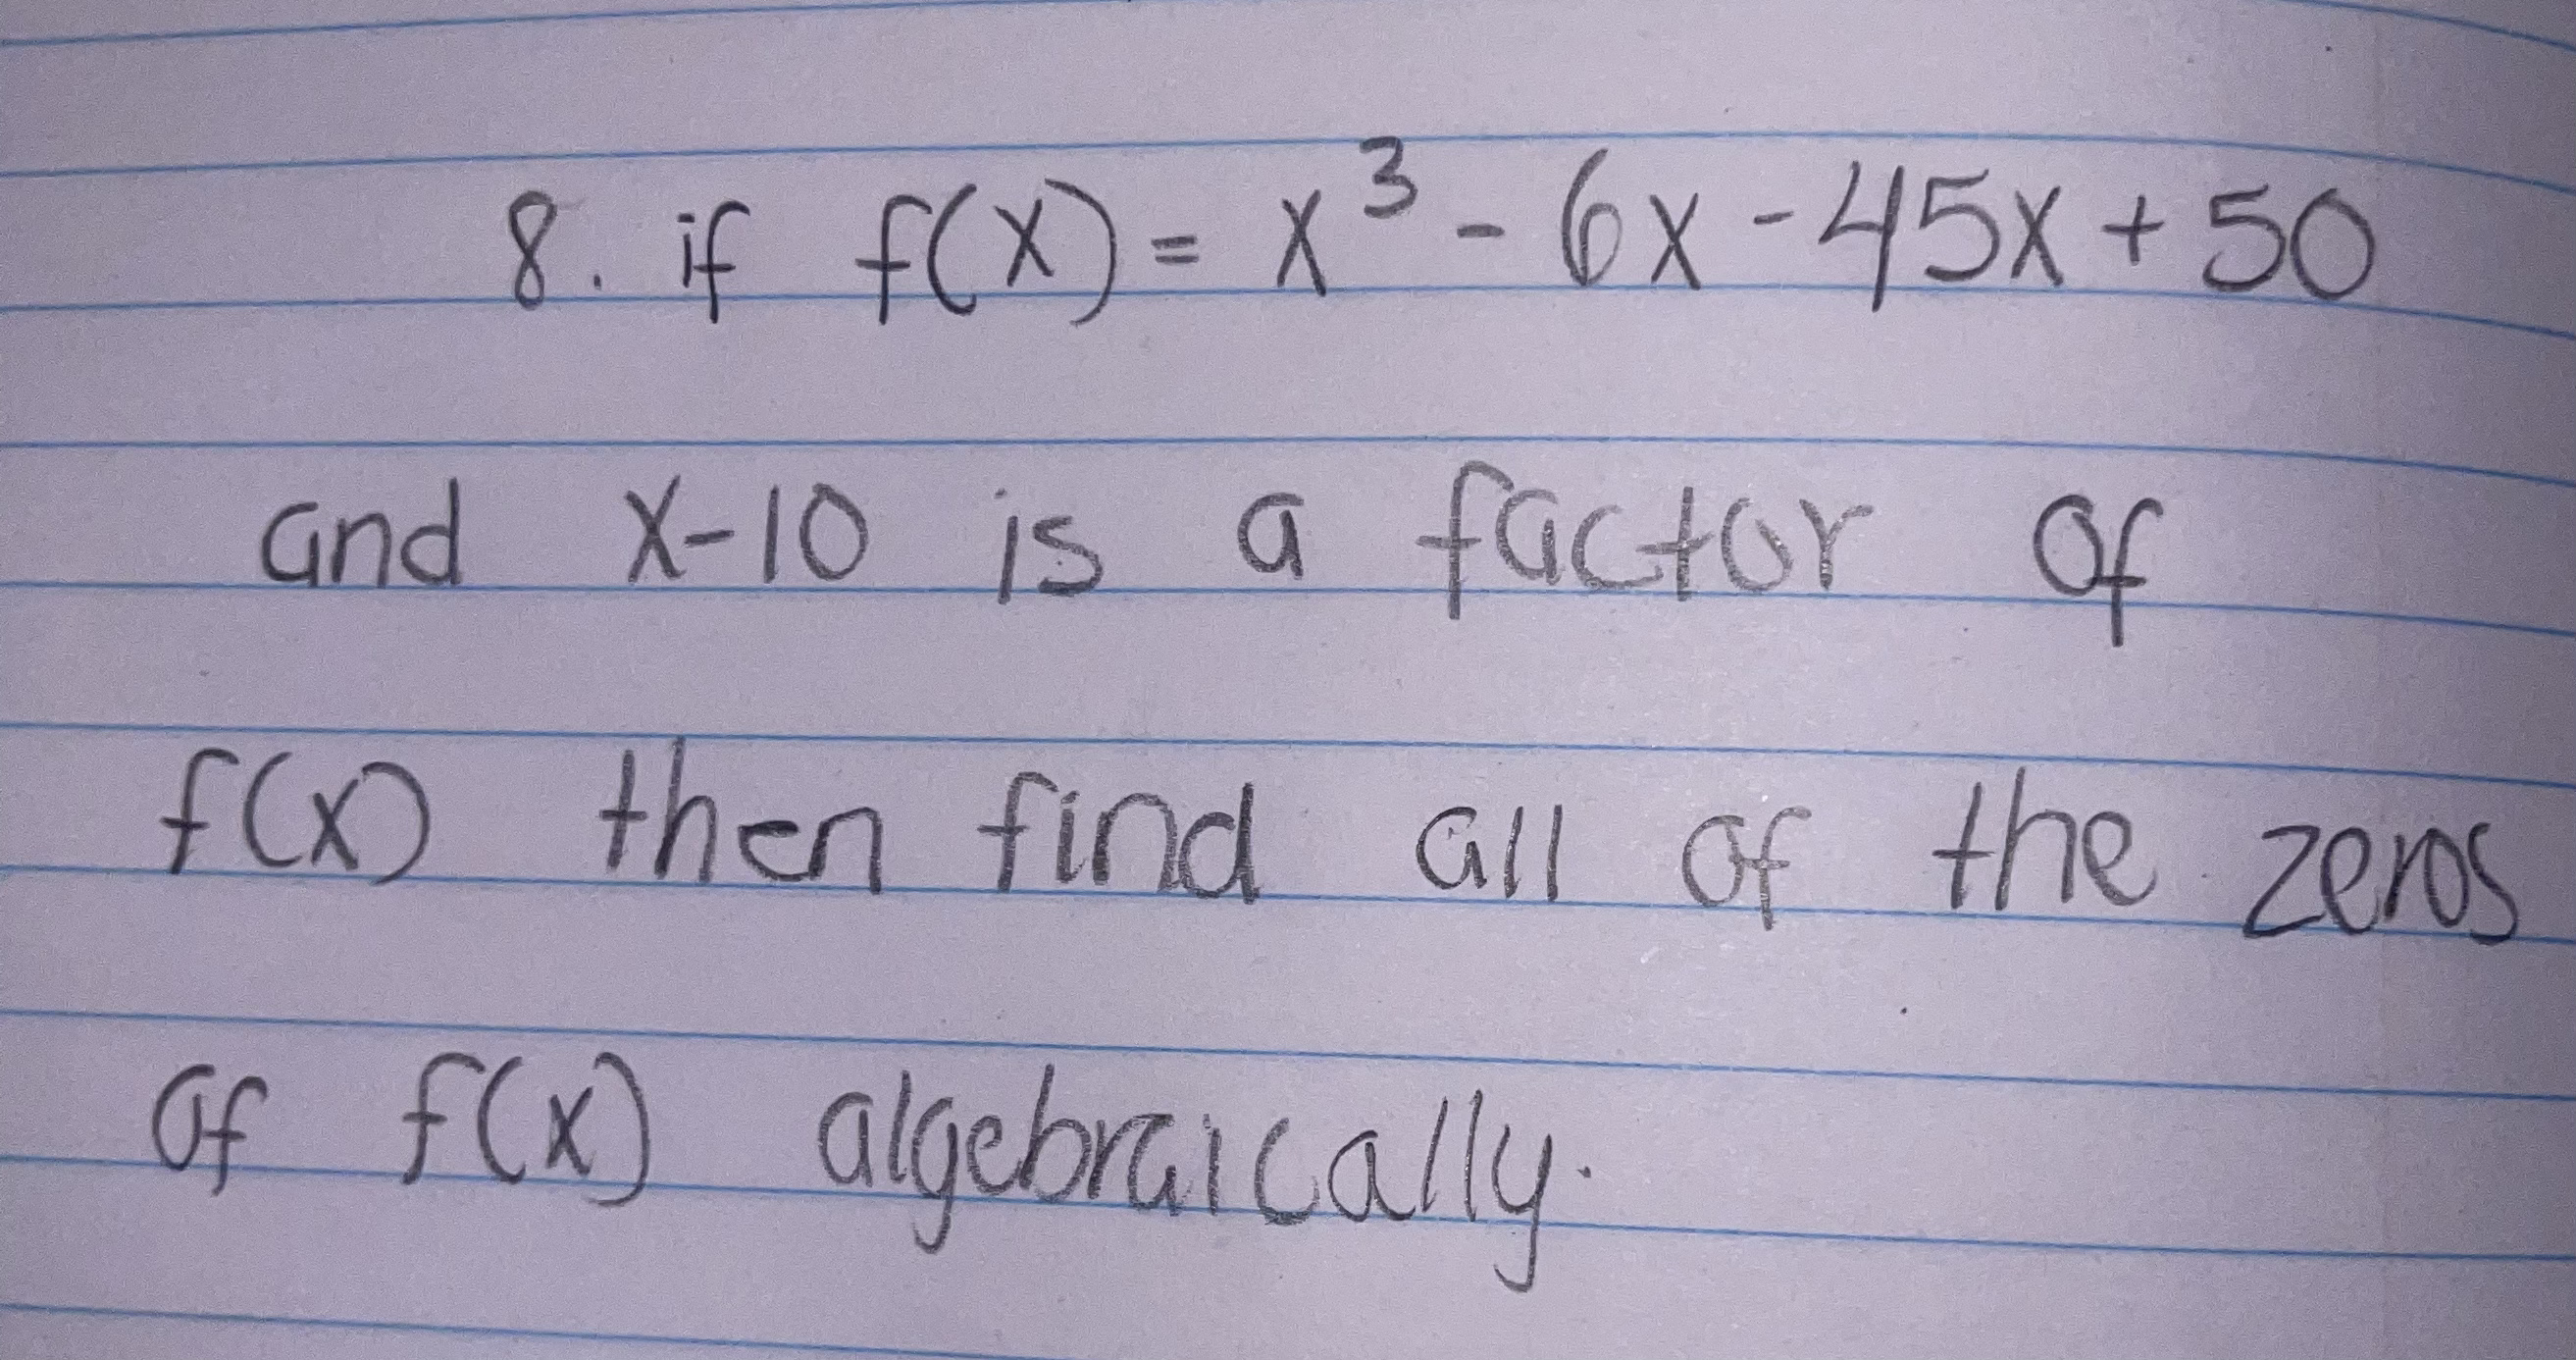 8. if f(x) = x³ - 6x - 45x + 50
and x-10 is a factor of
f(x) then find all of the zeros
of f(x) algebraically.